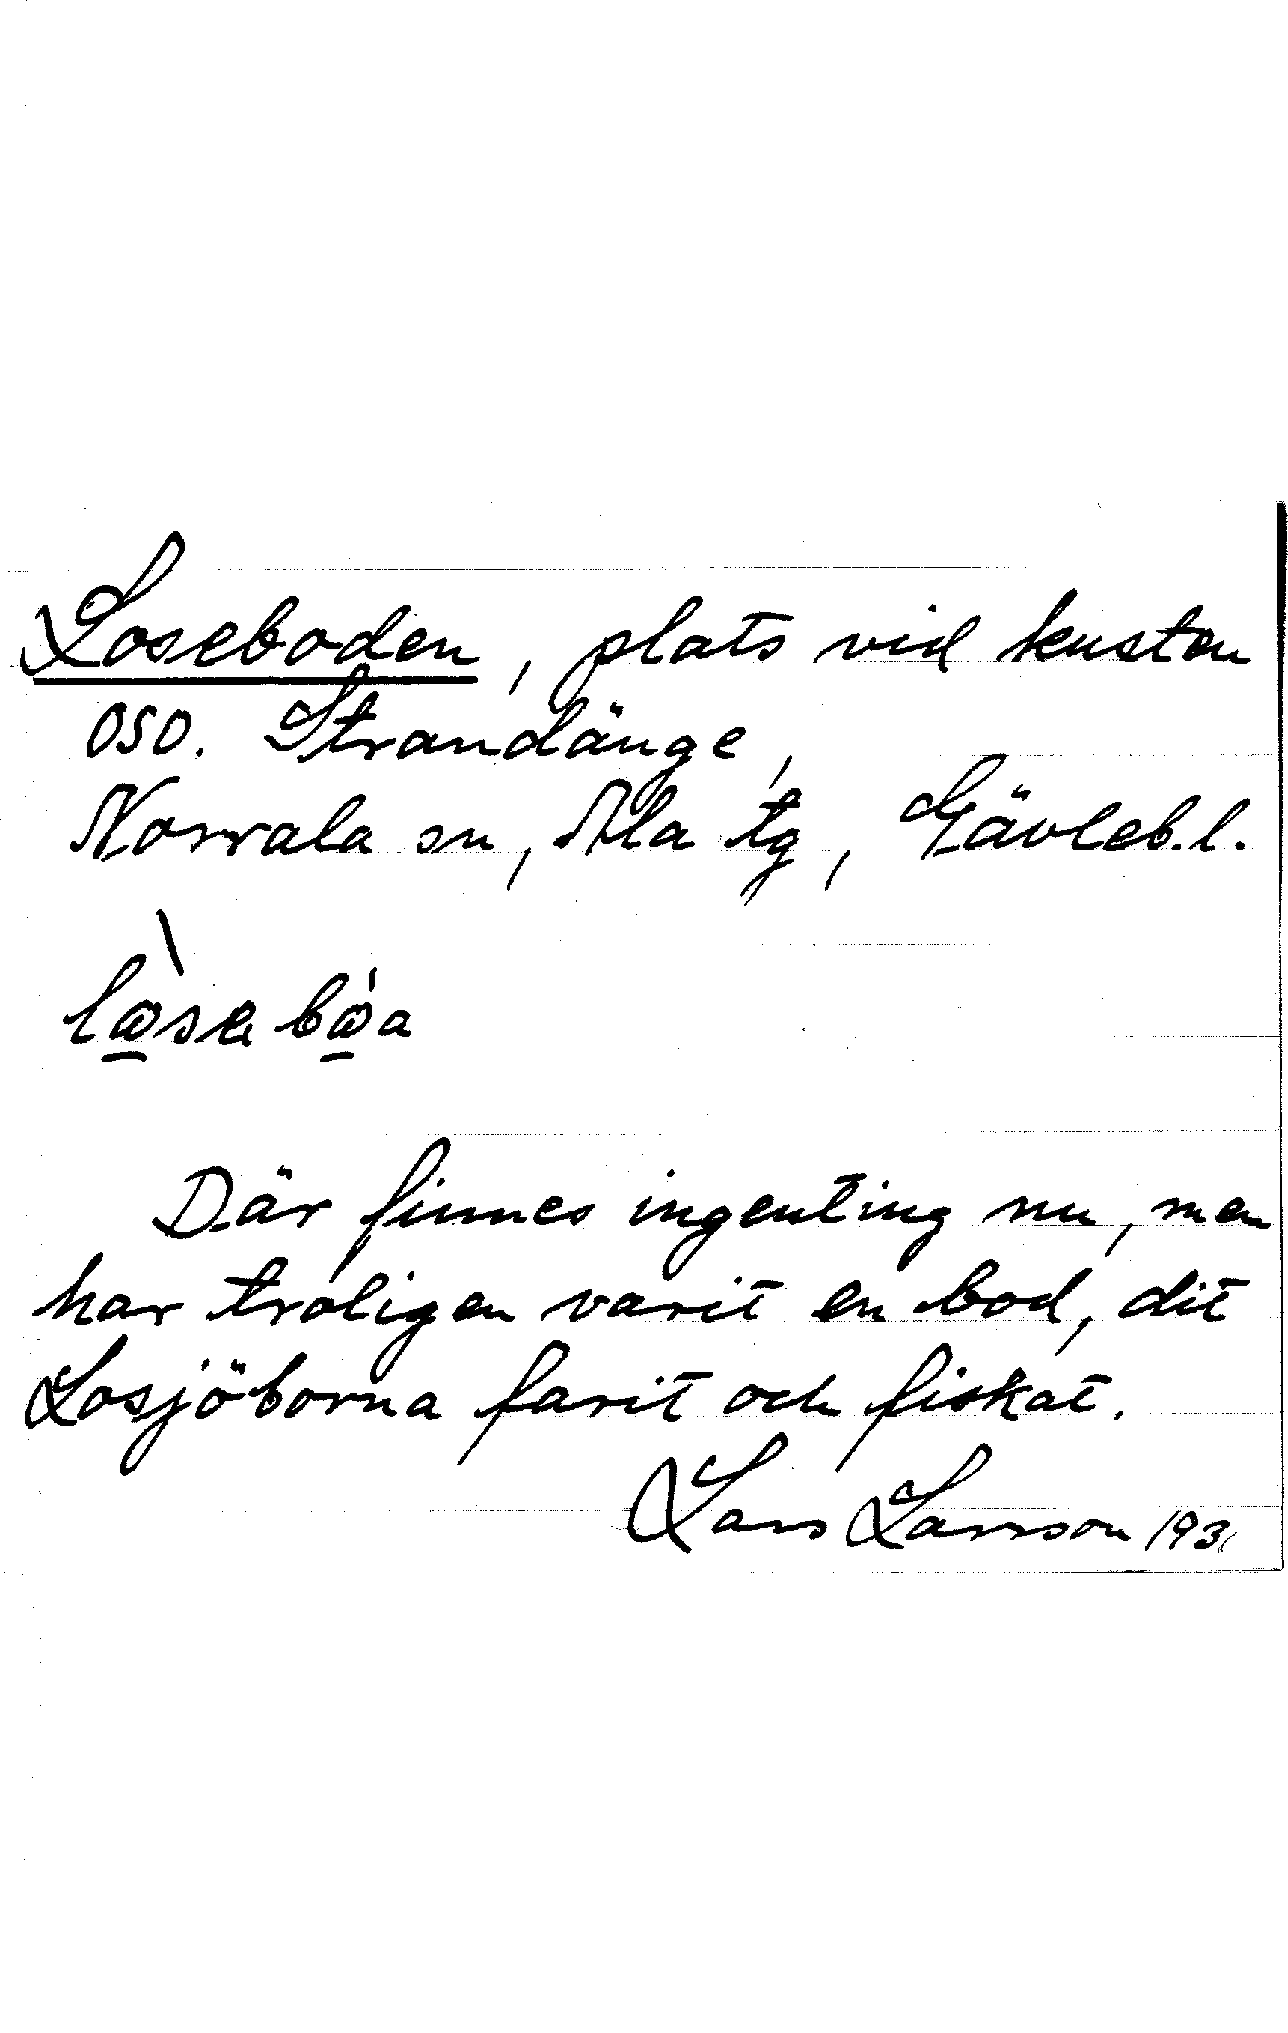 Loseboden, plats vid kusten
OSO. Strandänge,
Norrala sn, Ala tg, Gävleb.l.
Där finnes ingenting nu, men
har troligen varit en bod, dit
Losjöborna farit och fiskat.
Lars Larsson